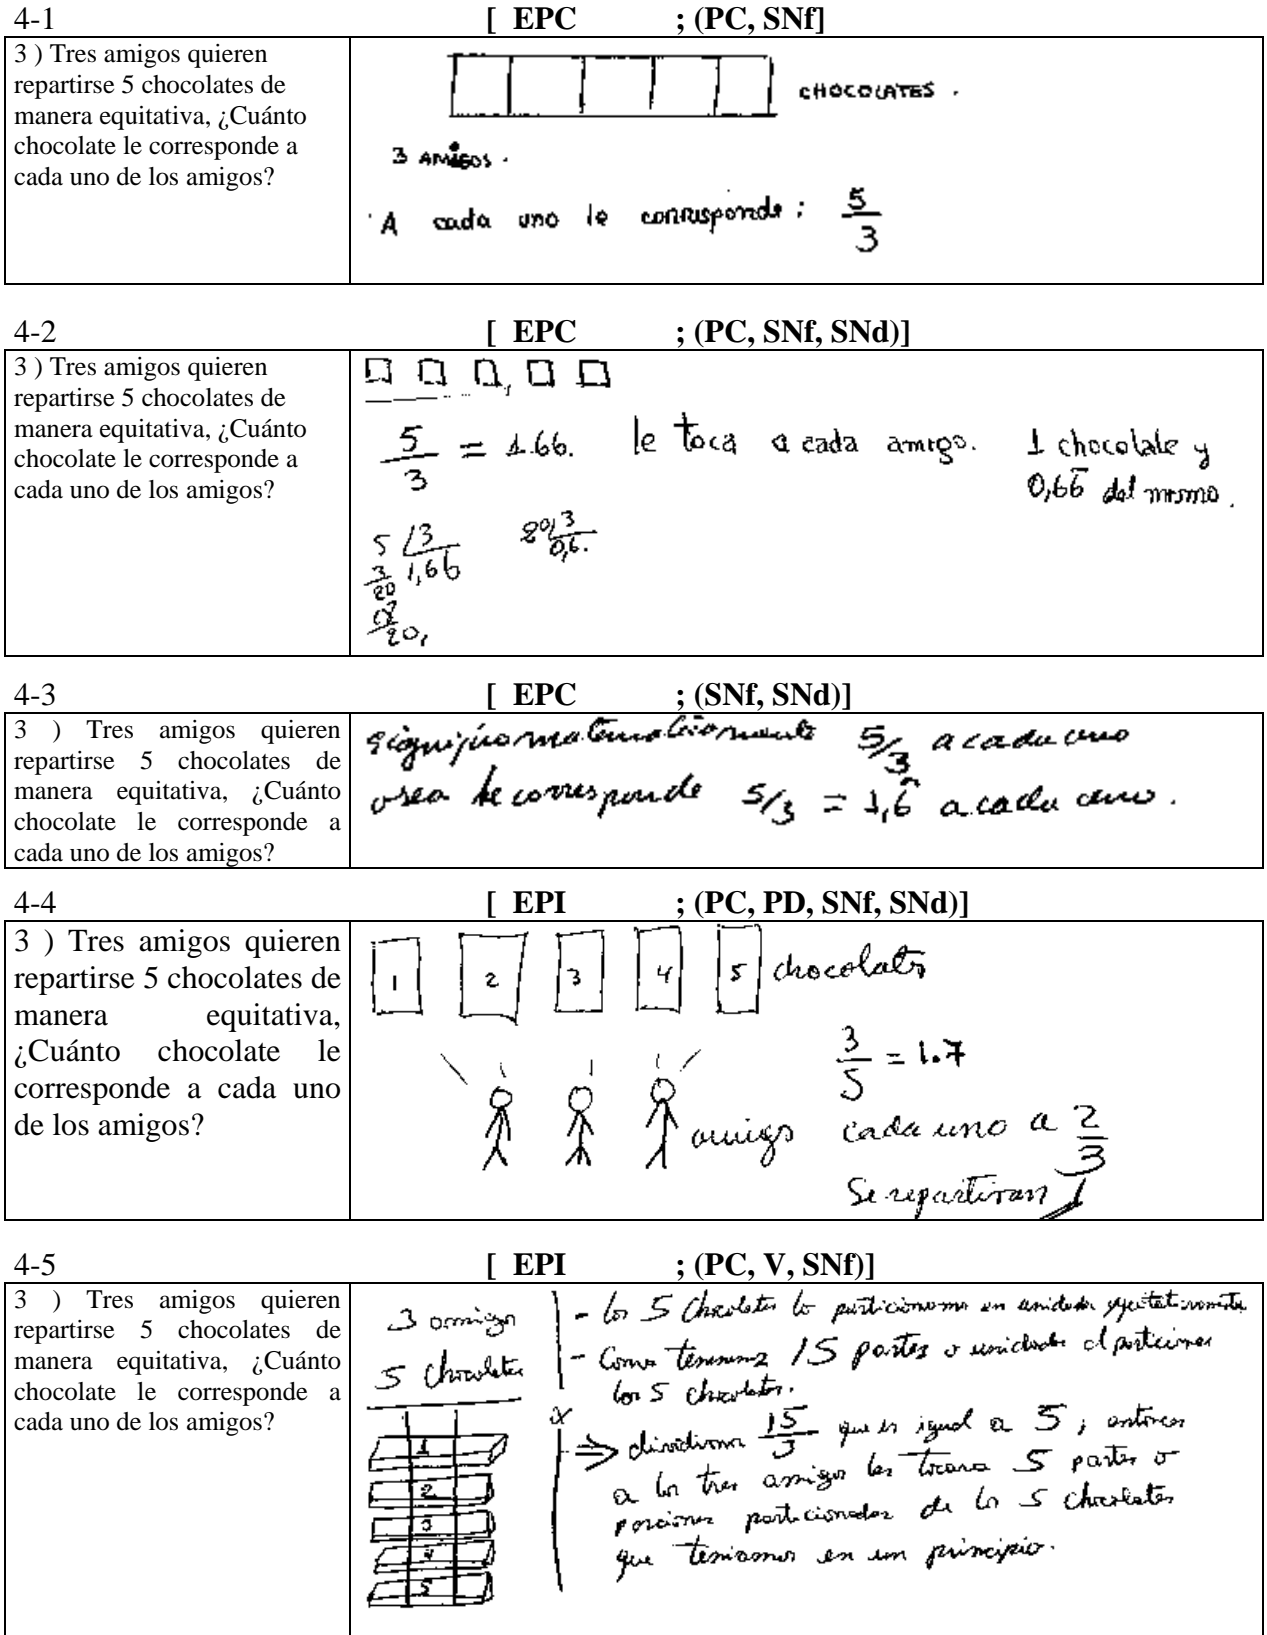 4-1 [ EPC ; (PC, SNf]
3 ) Tres amigos quieren
repartirse 5 chocolates de
manera equitativa, ¿Cuánto
chocolate le corresponde a
cada uno de los amigos?
CHOCOLATES .
3 AMIGOS .
A cada uno le corresponde : 5/3
4-2 [ EPC ; (PC, SNf, SNd)]
3 ) Tres amigos quieren
repartirse 5 chocolates de
manera equitativa, ¿Cuánto
chocolate le corresponde a
cada uno de los amigos?
5/3 = 1.66. le toca a cada amigo. 1 chocolate y
0,66 del mismo.
5 /3 20/3
3 1,66 0,6.
20
20,
4-3 [ EPC ; (SNf, SNd)]
3 ) Tres amigos quieren
repartirse 5 chocolates de
manera equitativa, ¿Cuánto
chocolate le corresponde a
cada uno de los amigos?
5/3 a cada uno
osea le corresponde 5/3 = 1,6 a cada uno.
4-4 [ EPI ; (PC, PD, SNf, SNd)]
3 ) Tres amigos quieren
repartirse 5 chocolates de
manera equitativa,
¿Cuánto chocolate le
corresponde a cada uno
de los amigos?
1 2 3 4 5 chocolats
3/5 = 1.7
amigo cada uno a 2/3
Se repartiran 1
4-5 [ EPI ; (PC, V, SNf)]
3 ) Tres amigos quieren
repartirse 5 chocolates de
manera equitativa, ¿Cuánto
chocolate le corresponde a
cada uno de los amigos?
3 amigos
5 chocolates
1
2
3
4
5
- los 5 chocolates lo particionamos en unidades
- Como tenemos 15 partes o unidades al particionar
los 5 chocolates.
⇒ dividimos 15/3 que es igual a 5 ; entonces
a los tres amigos les tocara 5 partes o
porciones particionadas de los 5 chocolates
que teniamos en un principio.